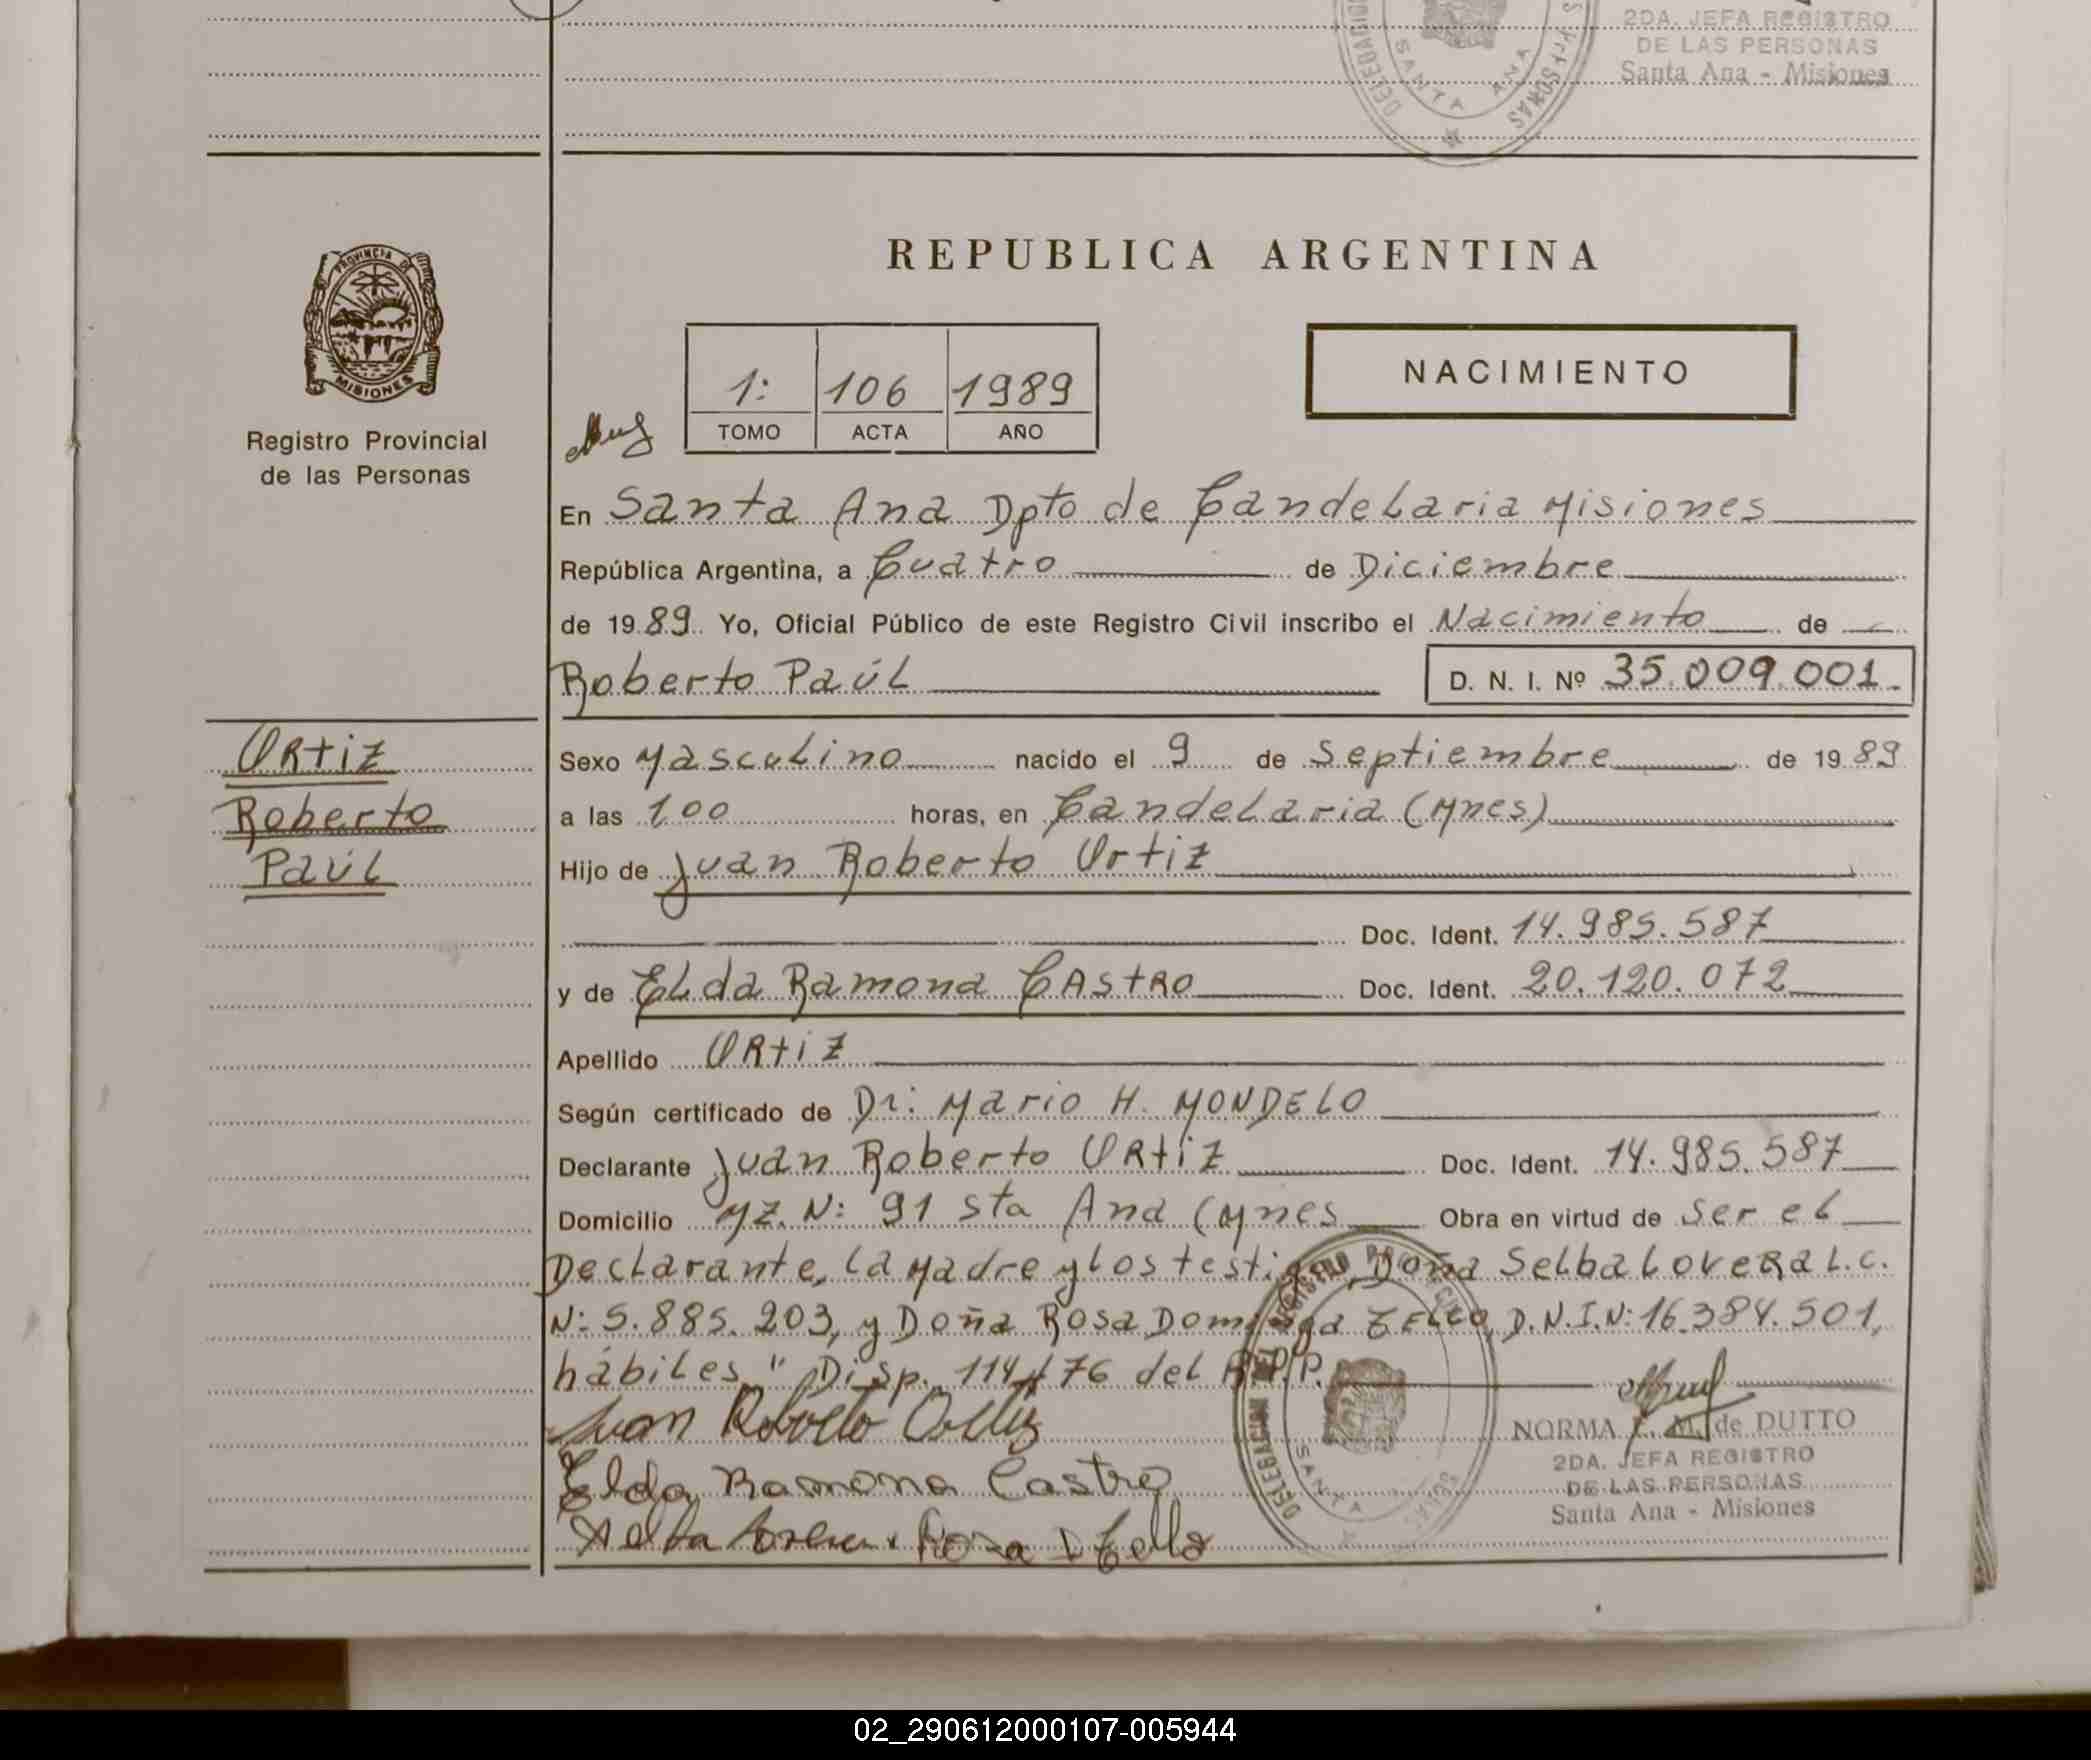 2DA. JEFA REGISTRO
DE LAS PERSONAS
Santa Ana - Misiones
SANTA ANA
PROVINCIA DE
MISIONES
Registro Provincial
de las Personas
REPUBLICA ARGENTINA
1: 106 1989
TOMO ACTA AÑO
NACIMIENTO
En Santa Ana Dpto de Candelaria Misiones
República Argentina, a Cuatro de Diciembre
de 1989. Yo, Oficial Público de este Registro Civil inscribo el Nacimiento de
Roberto Paúl D. N. I. Nº 35.009.001.
Ortiz
Roberto
Paúl
Sexo Masculino nacido el 9 de Septiembre de 1989
a las 1.00 horas, en Candelaria (Mnes)
Hijo de Juan Roberto Ortiz
Doc. Ident. 14.985.587
y de Elda Ramona CAstRo Doc. Ident. 20.120.072
Apellido ORtiz
Según certificado de Dr: Mario H. MONDELO
Declarante Juan Roberto ORtiz Doc. Ident. 14.985.587
Domicilio MZ. N: 91 Sta Ana (Mnes Obra en virtud de ser el
Declarante, la Madre y los testigos, Doña Selba LoveRa L.C.
N: 5.885.203, y Doña Rosa Dominga Tello, D.N.I.N: 16.384.501,
hábiles." Disp. 114/76 del R.P.P.
Juan Roberto Ortiz
Elda Ramona Castro
Rosa D Tello
NORMA M. de DUTTO
2DA. JEFA REGISTRO
DE LAS PERSONAS
Santa Ana - Misiones
02_290612000107-005944